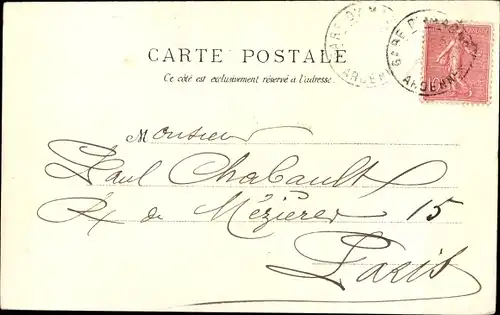 CARTE POSTALE
Ce côté est exclusivement réservé à l'adresse.
GARE D
ARDENNES
Monsieur
Paul Chabault
de Mézières 15
Paris